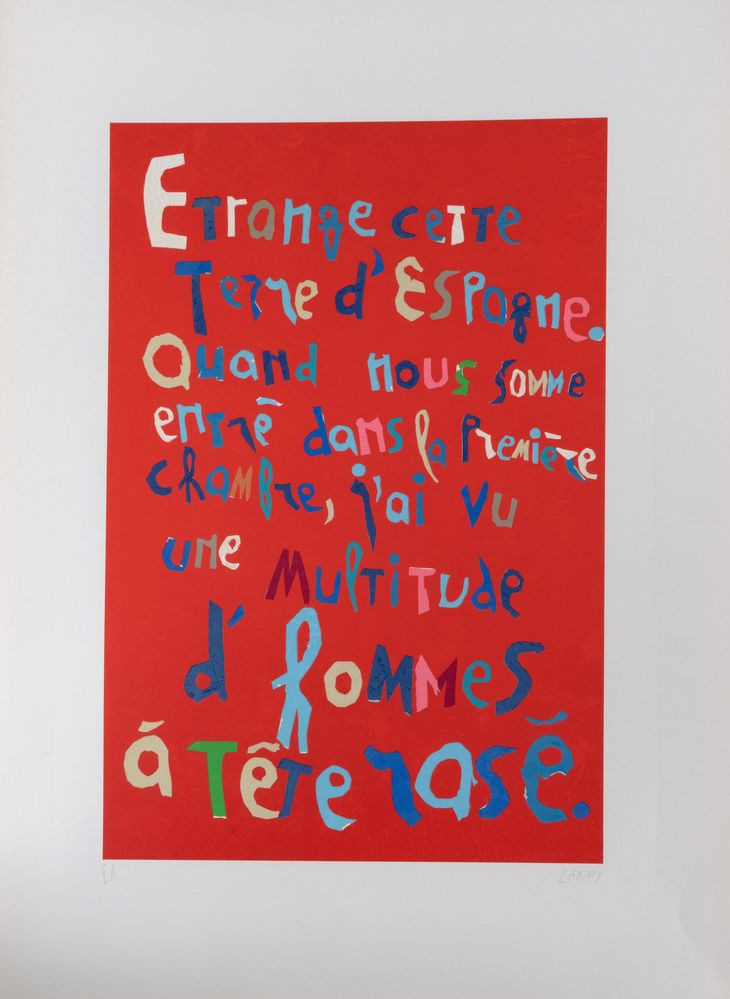 Etrange cette
Terre d'Espagne.
Quand nous somme
entré dans la première
chambre, j'ai vu
une Multitude
d'hommes
à tête rasé.
EA LANSKOY